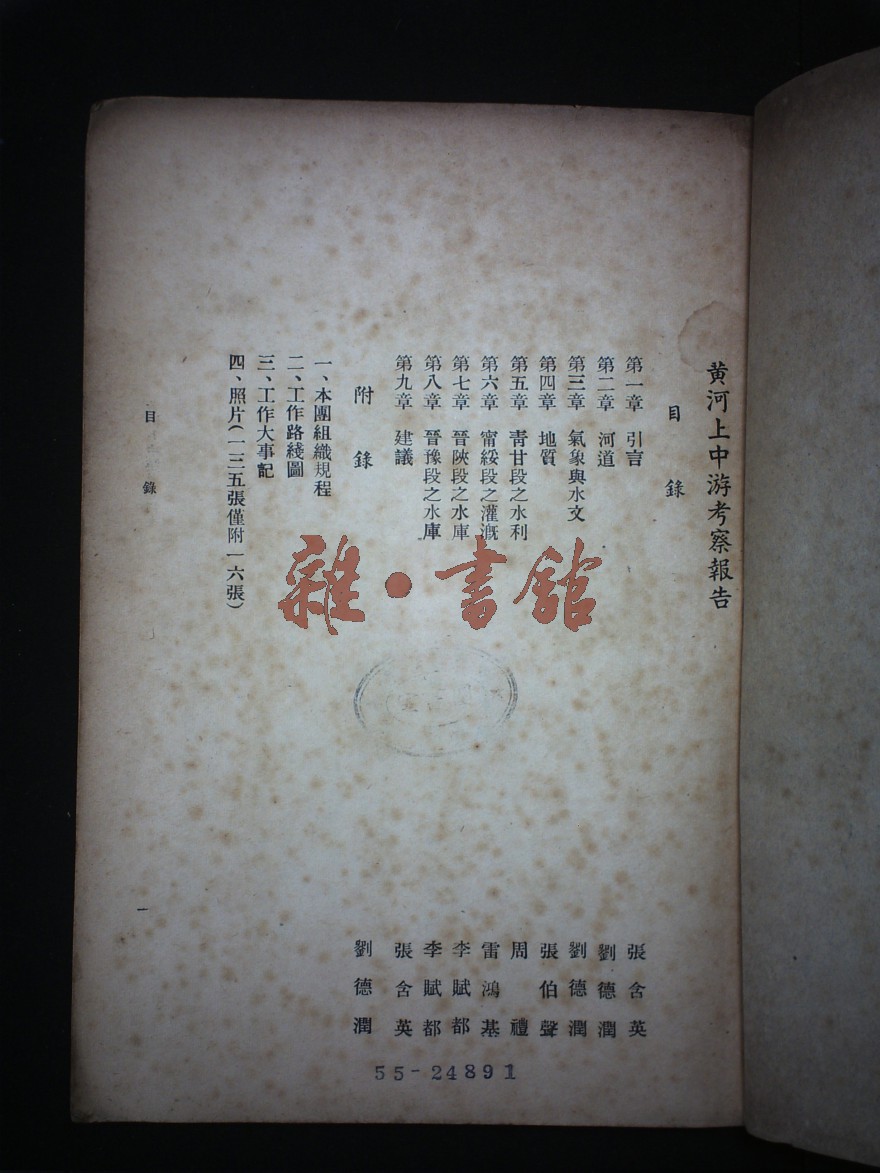 黃河上中游考察報告
目錄
第一章 引言 張含英
第二章 河道 劉德潤
第三章 氣象與水文 劉德潤
第四章 地質 張伯聲
第五章 靑甘段之水利 周禮
第六章 甯綏段之灌溉 雷鴻基
第七章 晉陝段之水庫 李賦都
第八章 晉豫段之水庫 李賦都
第九章 建議 張含英
附錄 劉德潤
一、本團組織規程
二、工作路綫圖
三、工作大事記
四、照片(一三五張僅附一六張)
目錄
一
雜·書館
55-24891